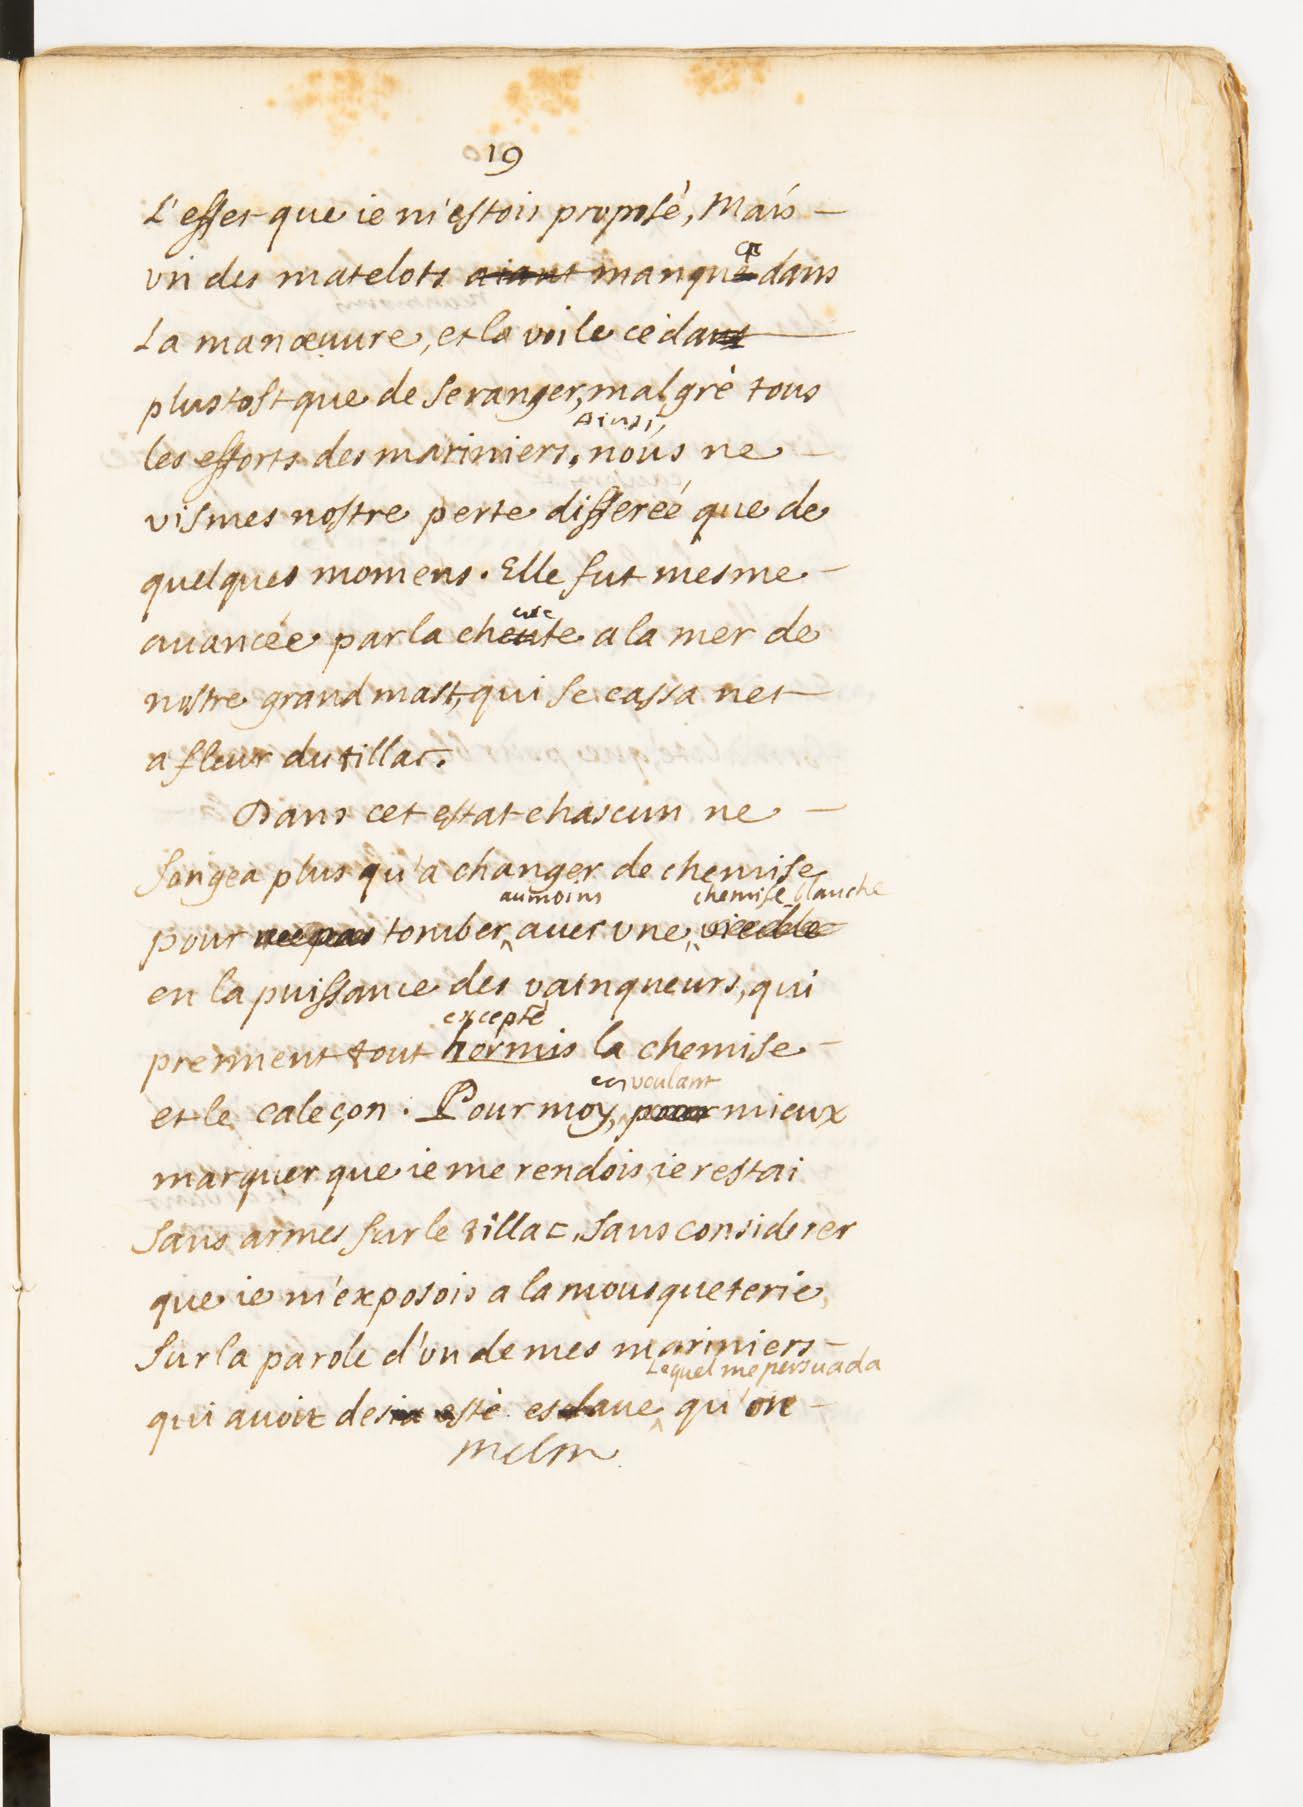 19
L'effet que ie m'estois proposé, Mais
vn des matelots aiant manqua dans
La manœuure, et la voile céda
plustost que de se ranger, malgré tous
Ainsi
les efforts des mariniers, nous ne
vismes nostre perte differeé que de
quelques momens. Elle fut mesme
auancée par la cheute a la mer de
nostre grand mast, qui se cassa net
a fleur du tillac.
Dans cet estat chascun ne
songea plus qu'a changer de chemise
au moins chemise blanche
pour ne pas tomber auec vne vieille
en la puissance des vainqueurs, qui
excepté
prennent tout hormis la chemise
et le caleçon. Pour moy, pour mieux
en voulant
marquer que ie me rendois ie restai
sans armes sur le tillac, sans considerer
que ie m'exposois a la mousqueterie
sur la parole d'vn de mes mariniers
Lequel me persuada
qui auoit desia esté esclaue qu'on